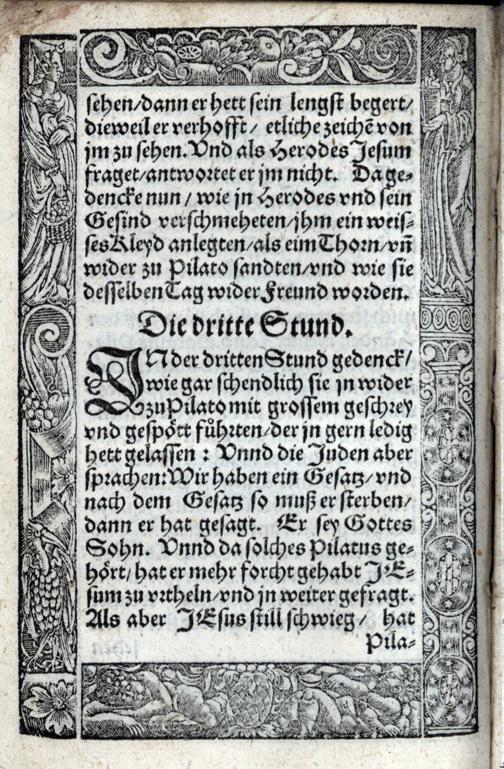 sehen/dann er hett sein lengst begert/
dieweil er verhofft/ etliche zeichẽ von
jm zu sehen. Vnd als Herodes Jesum
fraget/antwortet er jm nicht. Da ge-
dencke nun/ wie in Herodes vnd sein
Gesind verschmeheten/jhm ein weis-
ses Kleyd anlegten/als eim Thorn/vñ
wider zu Pilato sandten/vnd wie sie
desselben Tag wider Freund worden.
Die dritte Stund.
IN der dritten Stund gedenck/
wie gar schendlich sie jn wider
zu Pilato mit grossem geschrey
vnd gespött führten/der jn gern ledig
hett gelassen: Vnnd die Juden aber
sprachen: Wir haben ein Gesatz/vnd
nach dem Gesatz so muß er sterben/
dann er hat gesagt. Er sey Gottes
Sohn. Vnnd da solches Pilatus ge-
hört/hat er mehr forcht gehabt JE-
sum zu vrtheln/vnd jn weiter gefragt.
Als aber JEsus still schwieg/ hat
Pila-